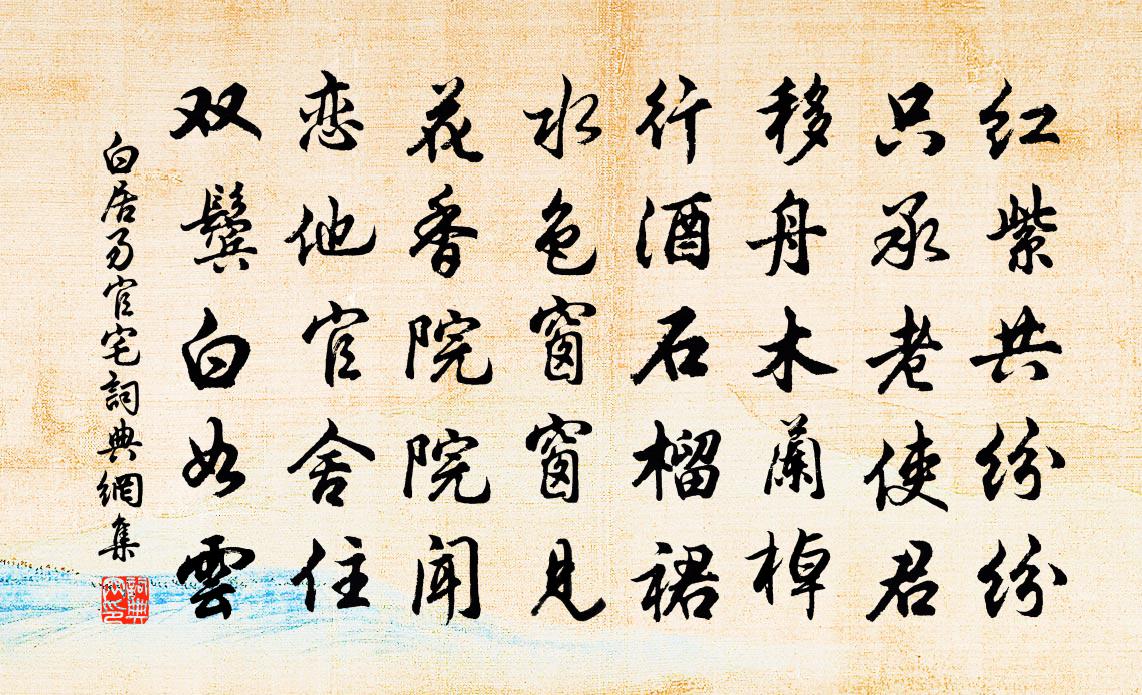 红紫共纷纷
只承老使君
移舟木蘭棹
行酒石榴裙
水色窗窗見
花香院院闻
恋他官舍住
双鬓白如雲
白居易官宅詞典網集